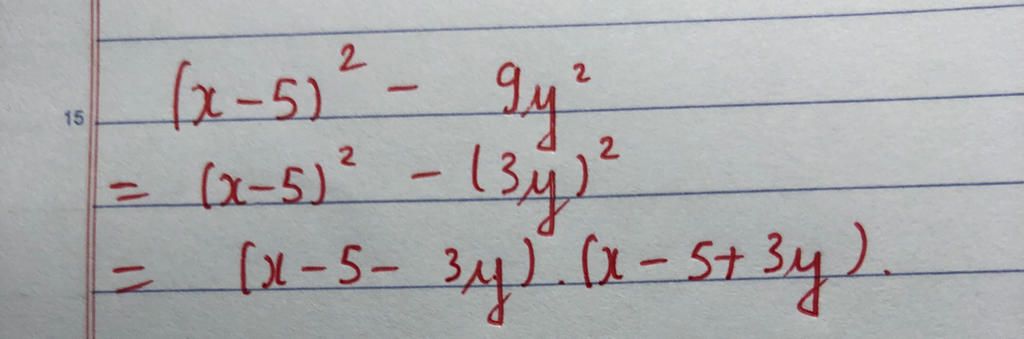 (x-5)² - 9y²
15
= (x-5)² - (3y)²
= (x-5- 3y).(x-5+3y).